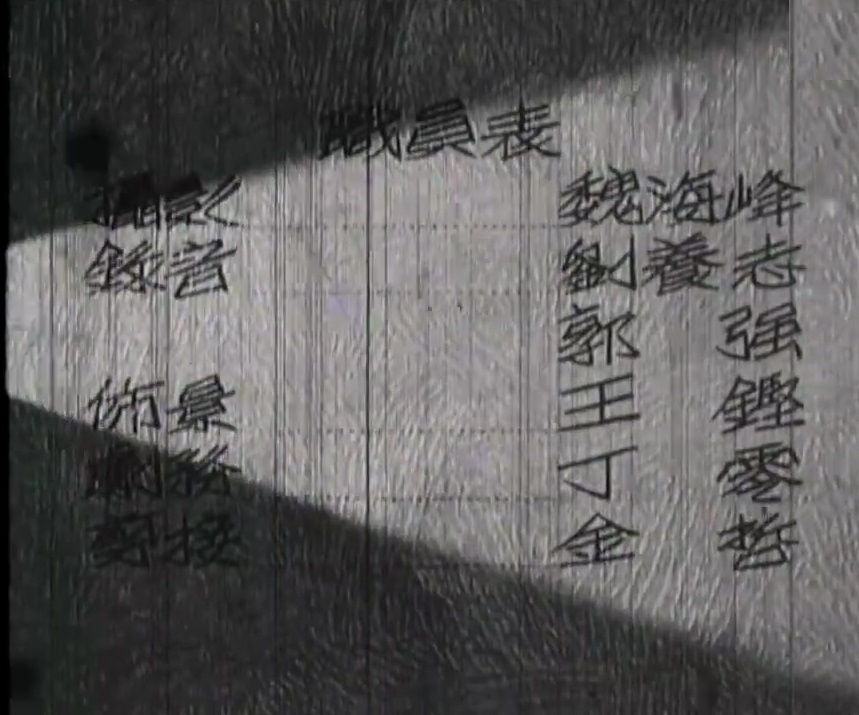 職員表
攝影 魏海峰
錄音 劉養志
郭强
佈景 王鏗
劇務 丁零
剪接 金哲